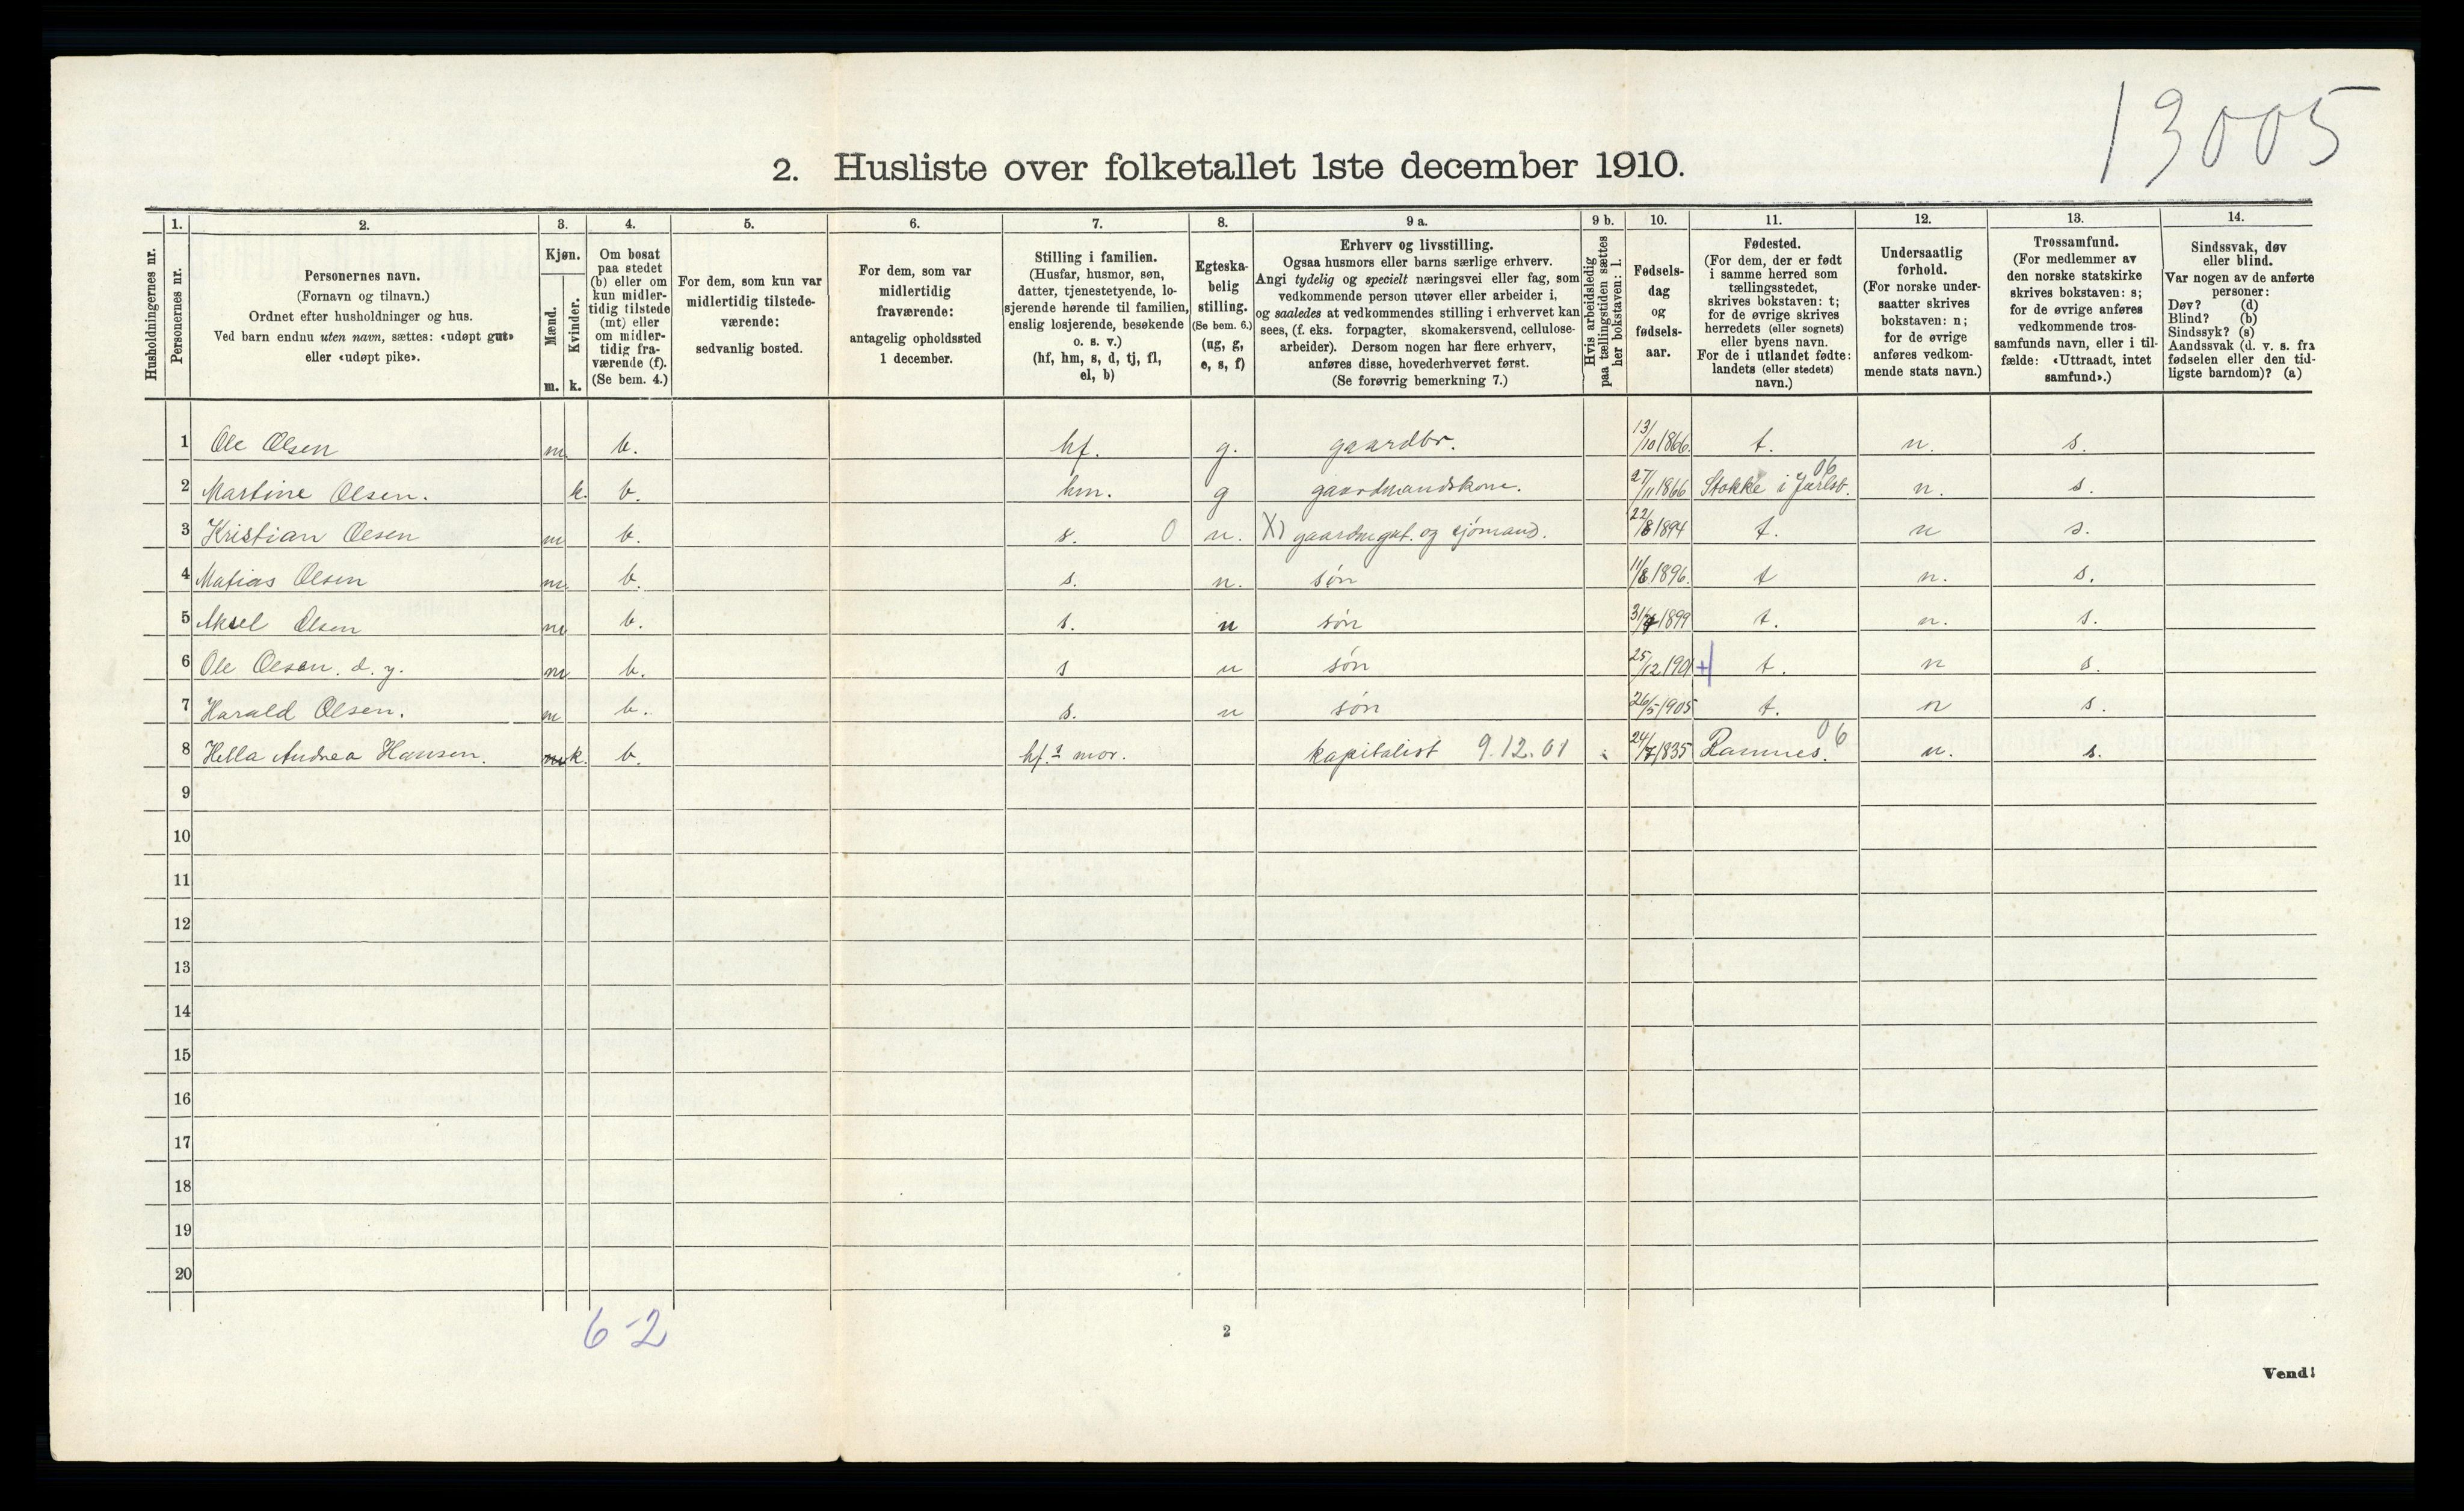 13005
2. Husliste over folketallet 1ste december 1910.
Husholdningernes nr.
1.
Personernes nr.
2.
Personernes navn.
(Fornavn og tilnavn.)
Ordnet efter husholdninger og hus.
Ved barn endnu uten navn, sættes: «udøpt gut»
eller «udøpt pike».
3.
Kjøn.
Mænd.
m.
Kvinder.
k.
4.
Om bosat
paa stedet
(b) eller om
kun midler-
tidig tilstede
(mt) eller
om midler-
tidig fra-
værende (f).
(Se bem. 4.)
5.
For dem, som kun var
midlertidig tilstede-
værende:
sedvanlig bosted.
6.
For dem, som var
midlertidig
fraværende:
antagelig opholdssted
1 december.
7.
Stilling i familien.
(Husfar, husmor, søn,
datter, tjenestetyende, lo-
sjerende hørende til familien,
enslig losjerende, besøkende
o. s. v.)
(hf, hm, s, d, tj, fl,
el, b)
8.
Egteska-
belig
stilling.
(Se bem. 6.)
(ug, g,
e, s, f)
9 a.
Erhverv og livsstilling.
Ogsaa husmors eller barns særlige erhverv.
Angi tydelig og specielt næringsvei eller fag, som
vedkommende person utøver eller arbeider i,
og saaledes at vedkommendes stilling i erhvervet kan
sees, (f. eks. forpagter, skomakersvend, cellulose-
arbeider). Dersom nogen har flere erhverv,
anføres disse, hovederhvervet først.
(Se forøvrig bemerkning 7.)
9 b.
Hvis arbeidsledig
paa tællingstiden sættes
her bokstaven: l.
10.
Fødsels-
dag
og
fødsels-
aar.
11.
Fødested.
(For dem, der er født
i samme herred som
tællingsstedet,
skrives bokstaven: t;
for de øvrige skrives
herredets (eller sognets)
eller byens navn.
For de i utlandet fødte:
landets (eller stedets)
navn.)
12.
Undersaatlig
forhold.
(For norske under-
saatter skrives
bokstaven: n;
for de øvrige
anføres vedkom-
mende stats navn.)
13.
Trossamfund.
(For medlemmer av
den norske statskirke
skrives bokstaven: s;
for de øvrige anføres
vedkommende tros-
samfunds navn, eller i til-
fælde: «Uttraadt, intet
samfund».)
14.
Sindssvak, døv
eller blind.
Var nogen av de anførte
personer:
Døv? (d)
Blind? (b)
Sindssyk? (s)
Aandssvak (d. v. s. fra
fødselen eller den tid-
ligste barndom)? (a)
1 Ole Olsen m b. hf. g. gaardbr. 13/10 1866. t. n. s.
2 Martine Olsen. k. b. hm. g gaardmandskone. 27/11 1866 Stokke i Jarlsb. 06 n. s.
3 Kristian Olsen m b. s. 0 u. X) gaardsgut. og sjømand. 22/8 1894 t. n s.
4 Matias Olsen m b. s. u. søn 11/8 1896. t n. s.
5 Aksel Olsen m b. s. u søn 31/7 1899 t. n. s.
6 Ole Olsen. d. y. m b. s u søn 25/12 1901 + t. n s.
7 Harald Olsen. m b. s. u søn 26/5 1905 t. n s.
8 Hella Andrea Hansen. k. b. hf.s mor. kapitalist 9.12.01 24/7 1835 Ramnes. 06 n. s.
9
10
11
12
13
14
15
16
17
18
19
20
6-2
2
Vend!